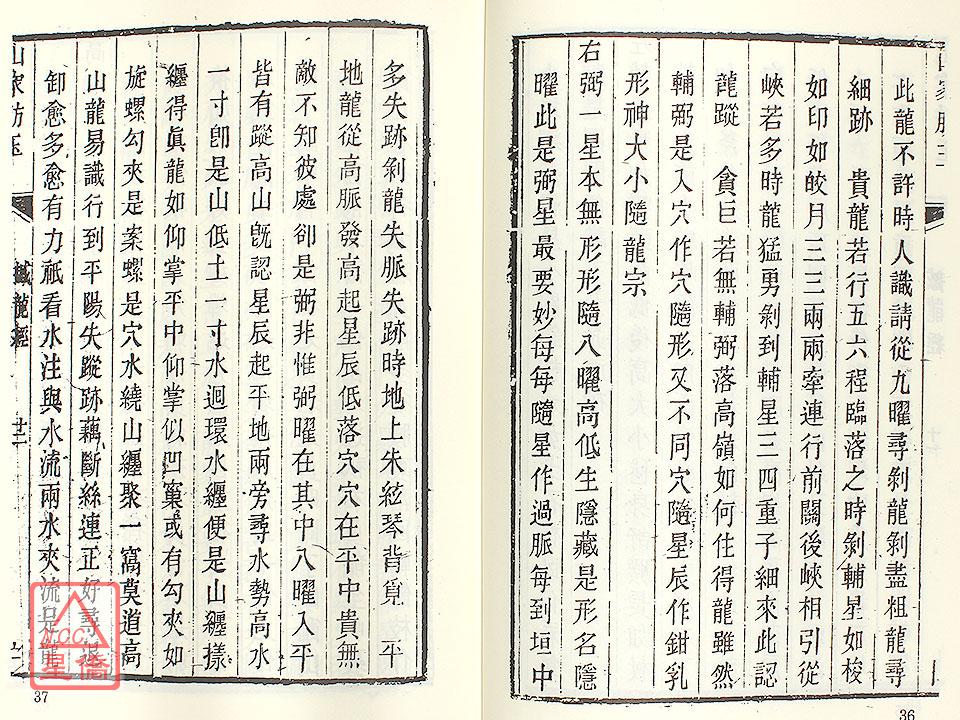 此龍不許時人識請從九曜尋剝龍剝盡粗龍尋
細跡　貴龍若行五六程臨落之時剝輔星如梭
如印如皎月三三兩兩牽連行前關後峽相引從
峽若多時龍猛勇剝到輔星三四重子細來此認
龍蹤　貪巨若無輔弼落高嶺如何住得龍雖然
輔弼是入穴作穴隨形又不同穴隨星辰作鉗乳
形神大小隨龍宗
右弼一星本無形形隨八曜高低生隱藏是形名隱
曜此是弼星最要妙每每隨星作過脈每到垣中
36
多失跡剝龍失脈失跡時地上朱絃琴背覓　平
地龍從高脈發高起星辰低落穴穴在平中貴無
敵不知彼處卻是弼非惟弼曜在其中八曜入平
皆有蹤高山旣認星辰起平地兩旁尋水勢高水
一寸卽是山低土一寸水迴環水纏便是山纏樣
纏得眞龍如仰掌平中仰掌似凹窠或有勾夾如
旋螺勾夾是案螺是穴水繞山纏聚一窩莫道高
山龍易識行到平陽失蹤跡藕斷絲連正好尋退
卸愈多愈有力祇看水注與水流兩水夾流是龍
撼龍經
37
NCC
星僑